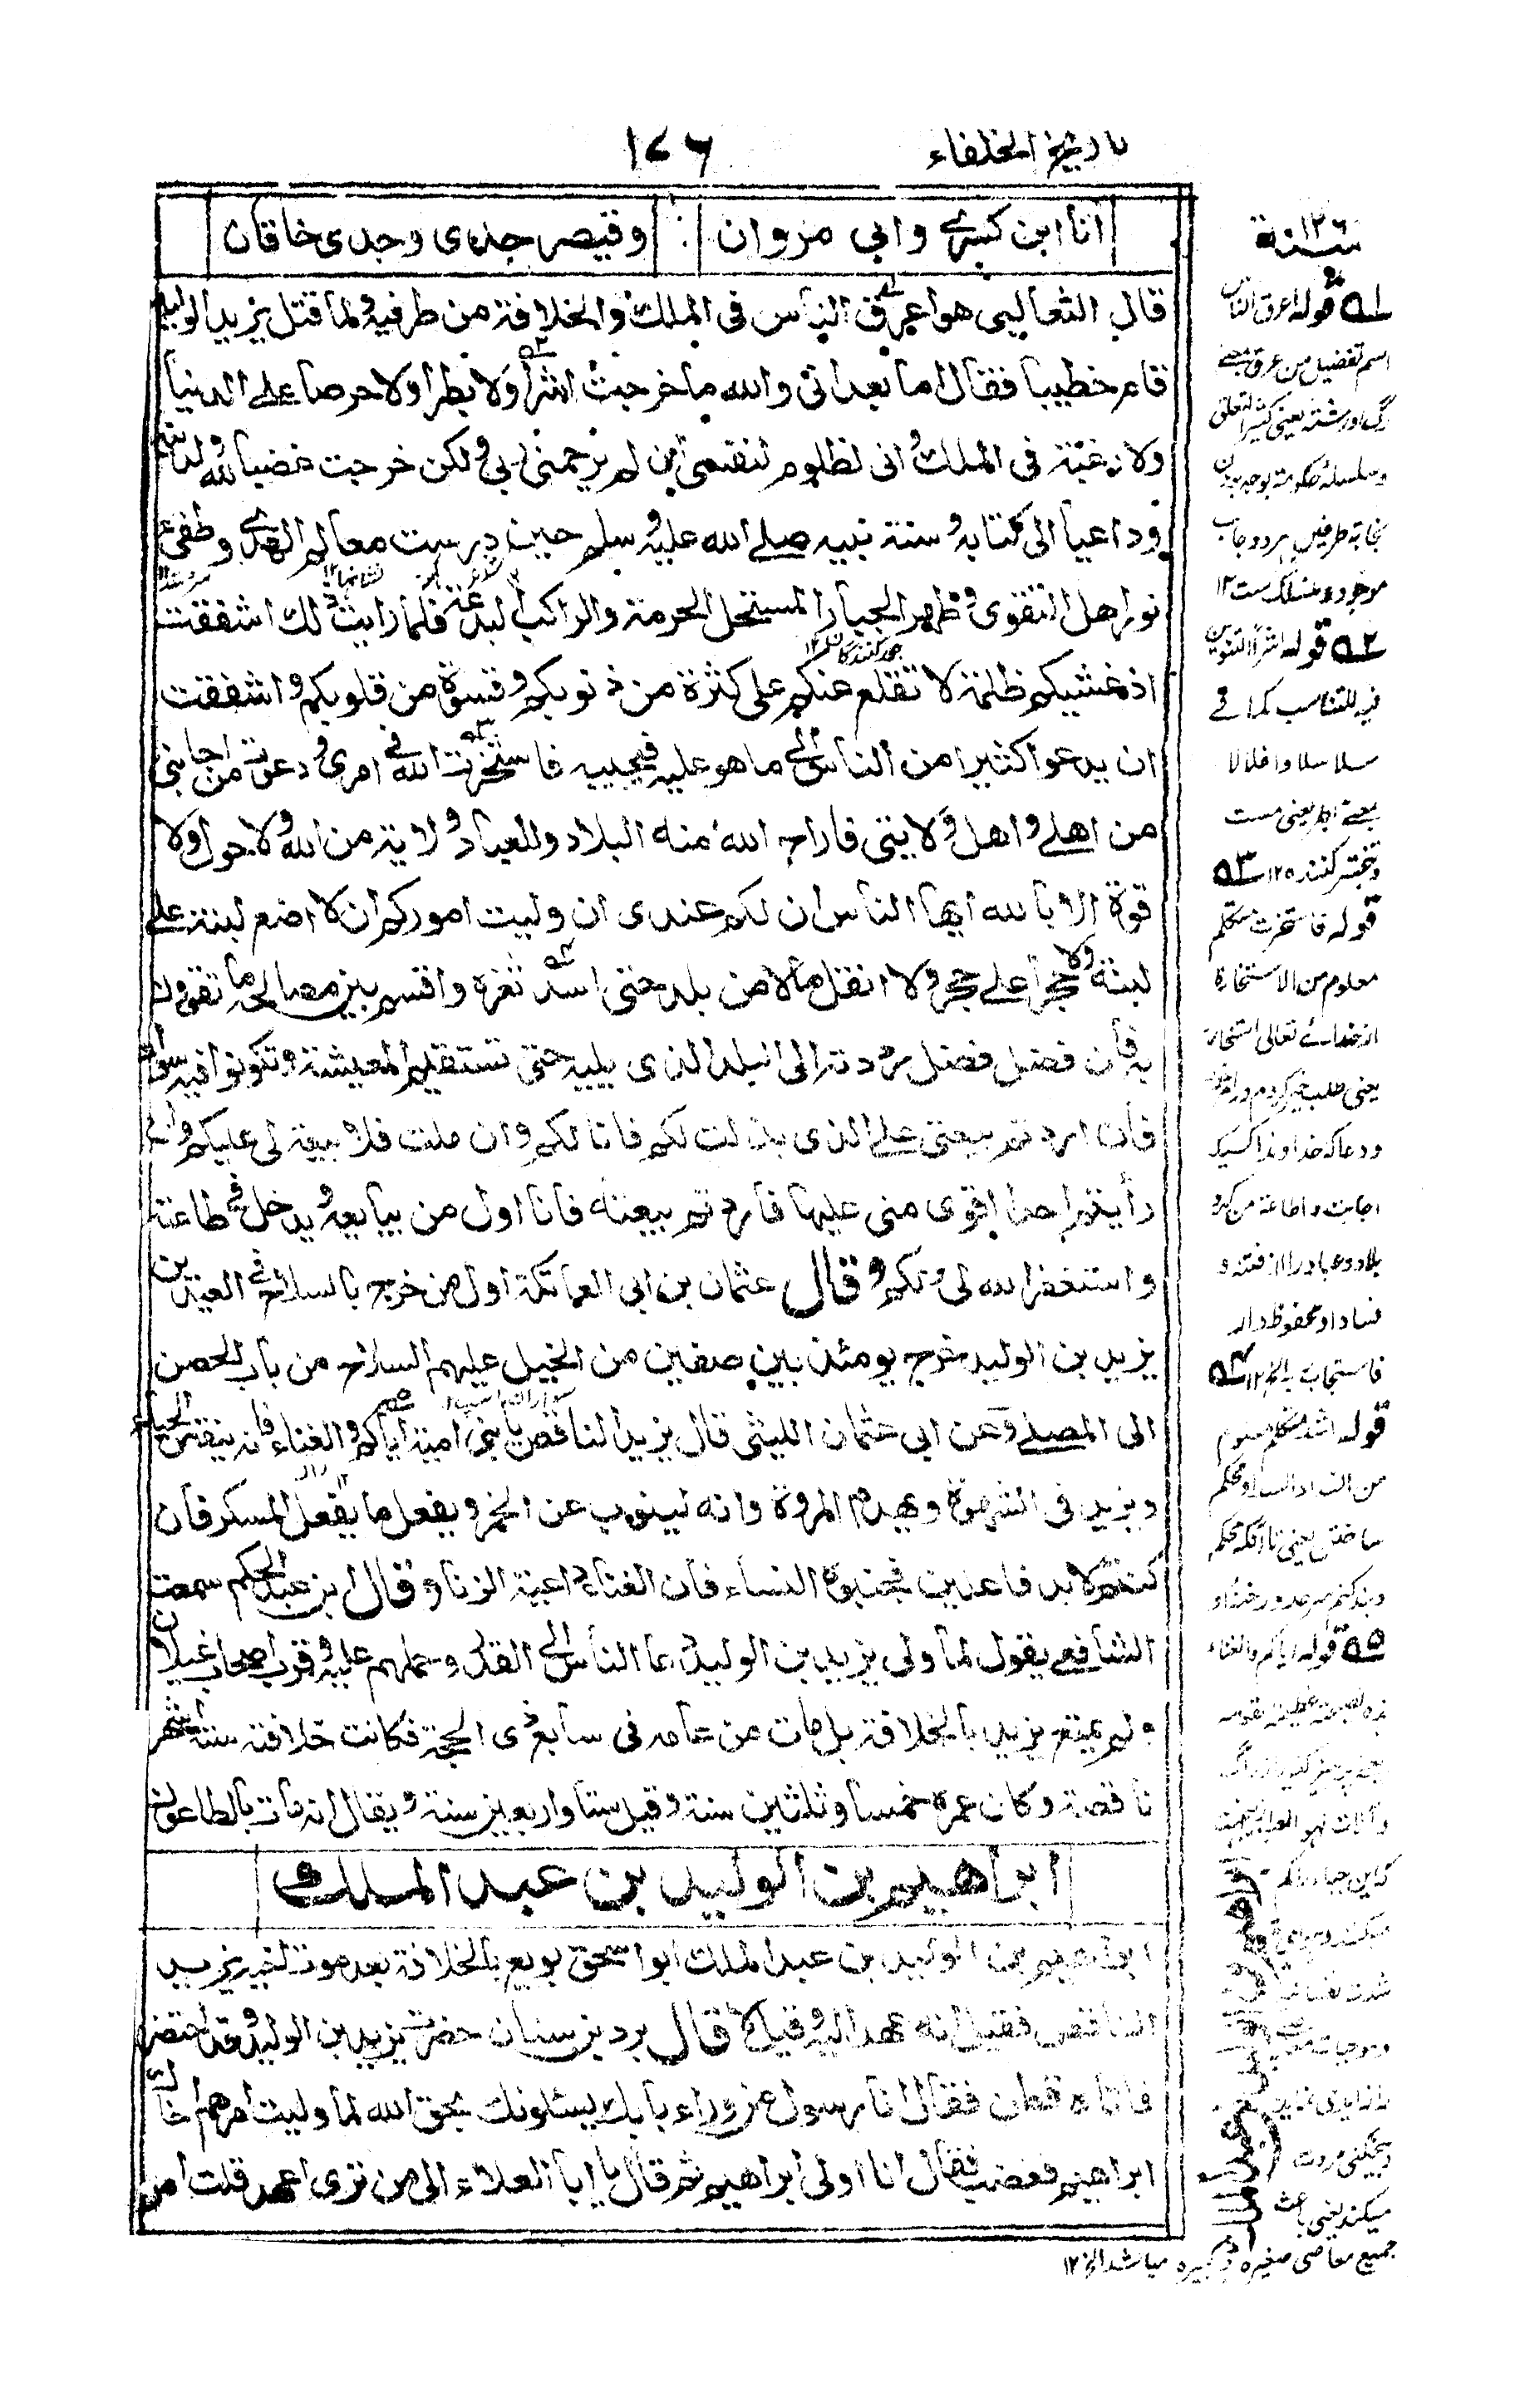 تاريخ الخلفاء
١٧٦
انا ابن كسرى وابي مروان : وقيصر جدي وجدي خاقان
قال الثعالبي هو اعرق الناس في الملك والخلافة من طرفيه ولما قتل يزيد الوليد
قام خطيبا فقال اما بعد اني والله ما خرجت اشرا ولا بطرا ولا حرصا على الدنيا
ولا رغبة في الملك واني لظلوم لنفسي ان لم يرحمني ربي ولكن خرجت غضبا لله ولدينه
وداعيا الى كتابه وسنة نبيه صلى الله عليه وسلم حين درست معالم الهدى وطفئ
نور اهل التقوى وظهر الجبار المستحل الحرمة والراكب البدعة فلما رايت ذلك اشفقت
اذ غشيكم ظلمة لا تقلع عنكم على كثرة من ذنوبكم وقسوة من قلوبكم واشفقت
ان يدعو اكثيرا من الناس الى ما هو عليه فيجيبه فاستخرت الله في امري ودعوت من اجابني
من اهلي واهل ولايتي فاراح الله منه البلاد والعباد ولاية من الله ولا حول ولا
قوة الا بالله ايها الناس ان لكم عندي ان وليت اموركم ان لا اضع لبنة على
لبنة ولا حجرا على حجر ولا انقل مالا من بلد حتى اسد ثغره واقسم بين مصالحه ما تقوون
به فان فضل فضل رددته الى البلد الذي يليه حتى تستقيم المعيشة وتكونوا فيه سواء
فان اردتم بيعتي على الذي بذلت لكم فانا لكم وان ملت فلا بيعة لي عليكم وان
رأيتم احدا اقوى مني عليها فاردتم بيعته فانا اول من يبايعه ويدخل في طاعته
واستغفر الله لي ولكم وقال عثمان بن ابي العاتكة اول من خرج بالسلاح في العيدين
يزيد بن الوليد خرج يومئذ بين صفين من الخيل عليهم السلاح من باب الحصن
الى المصلى وعن ابي عثمان الليثي قال يزيد الناقص يا بني امية اياكم والغناء فانه ينقص الحياء
ويزيد في الشهوة ويهدم المروة وانه لينوب عن الخمر ويفعل ما يفعل المسكر فان
كنتم لا بد فاعلين فجنبوه النساء فان الغناء داعية الزنا وقال ابن عبد الحكم سمعت
الشافعي يقول لما ولي يزيد بن الوليد دعا الناس الى القدر وحملهم عليه وقرب اصحاب غيلان
ولم يمتع يزيد بالخلافة بل مات من عامه في سابع ذي الحجة فكانت خلافته ستة اشهر
ناقصة وكان عمره خمسا وثلثين سنة وقيل ستا واربعين سنة ويقال انه مات بالطاعون
ابراهيم بن الوليد بن عبد الملك
ابراهيم بن الوليد بن عبد الملك ابو اسحق بويع بالخلافة بعد موت اخيه يزيد
الناقص فقيل انه عهد اليه وقيل لا قال برد بن سنان حضرت يزيد بن الوليد وقد احتضر
فاتاه قطن فقال انا رسول من وراء بابك يسئلونك بحق الله لما وليت امرهم اخاك
ابراهيم فغضب فقال انا اولي ابراهيم ثم قال يا ابا العلاء الى من ترى اعهد قلت امر
سنة ١٢٦
٥١ قوله اعرق الناس
اسم تفضيل من عرق
موجود
٥٢ قوله اشرا
فيه للتناسب كما في
سلاسلا واغلالا
٥٣
قوله فاستخرت متكلم
معلوم من الاستخارة
از خدائے تعالى استخاره
يعنى طلب خير كردم
ودعا كه خداوندا
اجابت و اطاعة من كرد
بلاد وعباد را از فتنه و
فساد او محفوظ دار
فاستجاب ١٢ ٥٤
قوله اسد متكلم معلوم
٥٥ قوله اياكم والغناء
ميكند يعنى باعث
جميع معاصى صغيره و كبيره ميباشد الخ ١٢